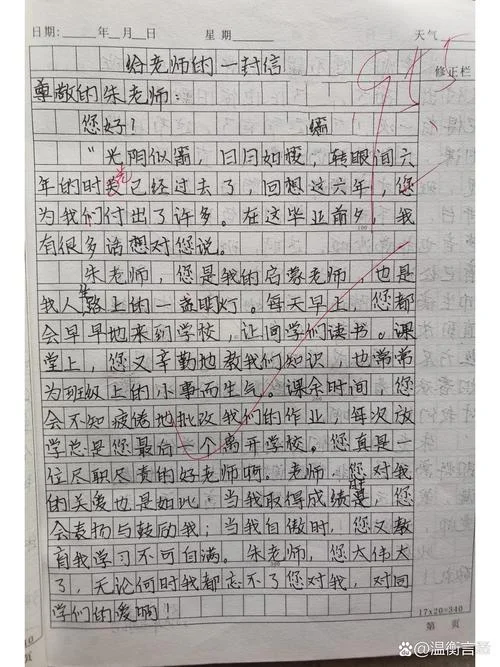 日期：____年__月__日 星期：____ 天气____
95
修正栏
给老师的一封信
尊敬的朱老师：
您好！
箭
“光阴似箭，日月如梭”，转眼间六
年的时光已经过去了，回想这六年，您
为我们付出了许多。在这毕业前夕，我
有很多话想对您说。
朱老师，您是我的启蒙老师，也是
我人生路上的一盏明灯。每天早上，您都
会早早地来到学校，让同学们读书。课
堂上，您又辛勤地教我们知识，也常常
为班级上的小事而生气。课余时间，您
会不知疲倦地批改我们的作业，每次放
学总是您最后一个离开学校。您真是一
位尽职尽责的好老师啊。老师，您对我
的关爱也是如此，当我取得成绩时，您
会表扬与鼓励我；当我自傲时，您又教
育我学习不可自满。朱老师，您太伟大
了，无论何时我都忘不了您对我，对同
学们的爱啊！
17×20=340
第 页
@温衡言